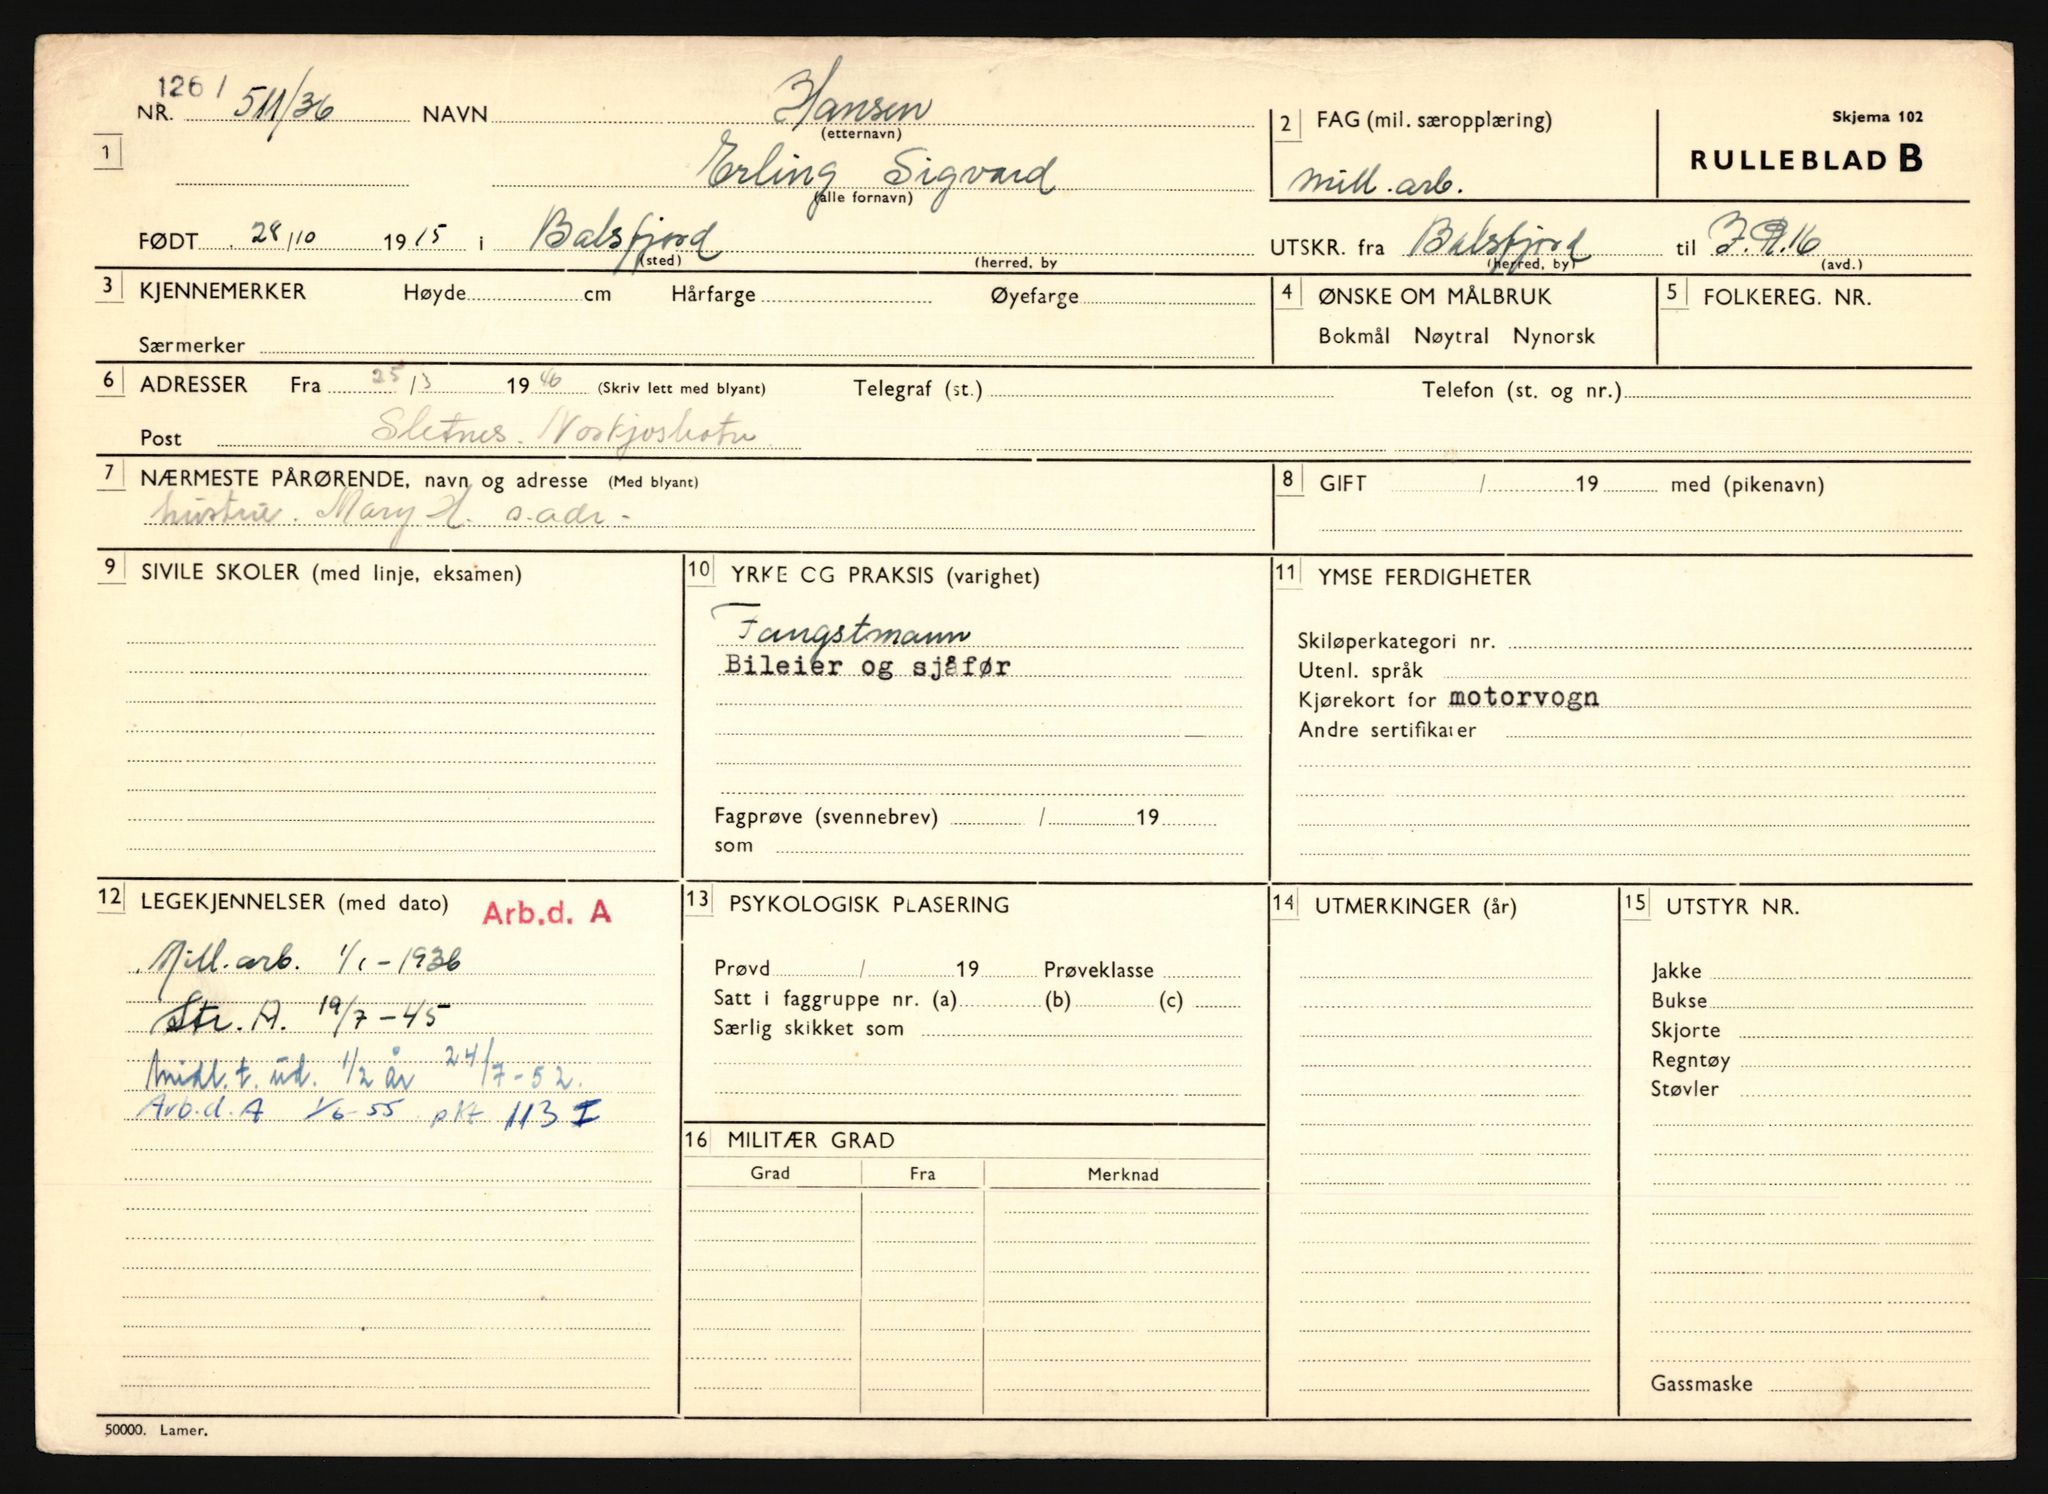 1261
NR. 511/36 NAVN Hansen
(etternavn)
1
Erling Sigvard
(alle fornavn)
2 FAG (mil. særopplæring)
Mill. arb.
Skjema 102
RULLEBLAD B
FØDT 28/10 1915 i Balsfjord
(sted) (herred, by
UTSKR. fra Balsfjord til I.R.16
(herred, by) (avd.)
3 KJENNEMERKER Høyde cm Hårfarge Øyefarge
Særmerker
4 ØNSKE OM MÅLBRUK
Bokmål Nøytral Nynorsk
5 FOLKEREG. NR.
6 ADRESSER Fra 25/3 1946 (Skriv lett med blyant) Telegraf (st.) Telefon (st. og nr.)
Post Sletnes. Norkjosbotn
7 NÆRMESTE PÅRØRENDE, navn og adresse (Med blyant)
hustru. Mary H. s. adr.
8 GIFT / 19 med (pikenavn)
9 SIVILE SKOLER (med linje, eksamen)
10 YRKE CG PRAKSIS (varighet)
Fangstmann
Bileier og sjåfør
Fagprøve (svennebrev) / 19
som
11 YMSE FERDIGHETER
Skiløperkategori nr.
Utenl. språk
Kjørekort for motorvogn
Andre sertifikater
12 LEGEKJENNELSER (med dato) Arb.d. A
Mill. arb. 1/1-1936
Str. A. 19/7-45
Midl. t. ud. 1/2 år 24/7-52.
Arb.d. A 1/6-55 pkt 113 I
13 PSYKOLOGISK PLASERING
Prøvd / 19 Prøveklasse
Satt i faggruppe nr. (a) (b) (c)
Særlig skikket som
14 UTMERKINGER (år)
15 UTSTYR NR.
Jakke
Bukse
Skjorte
Regntøy
Støvler
Gassmaske
16 MILITÆR GRAD
Grad Fra Merknad
50000. Lamer.